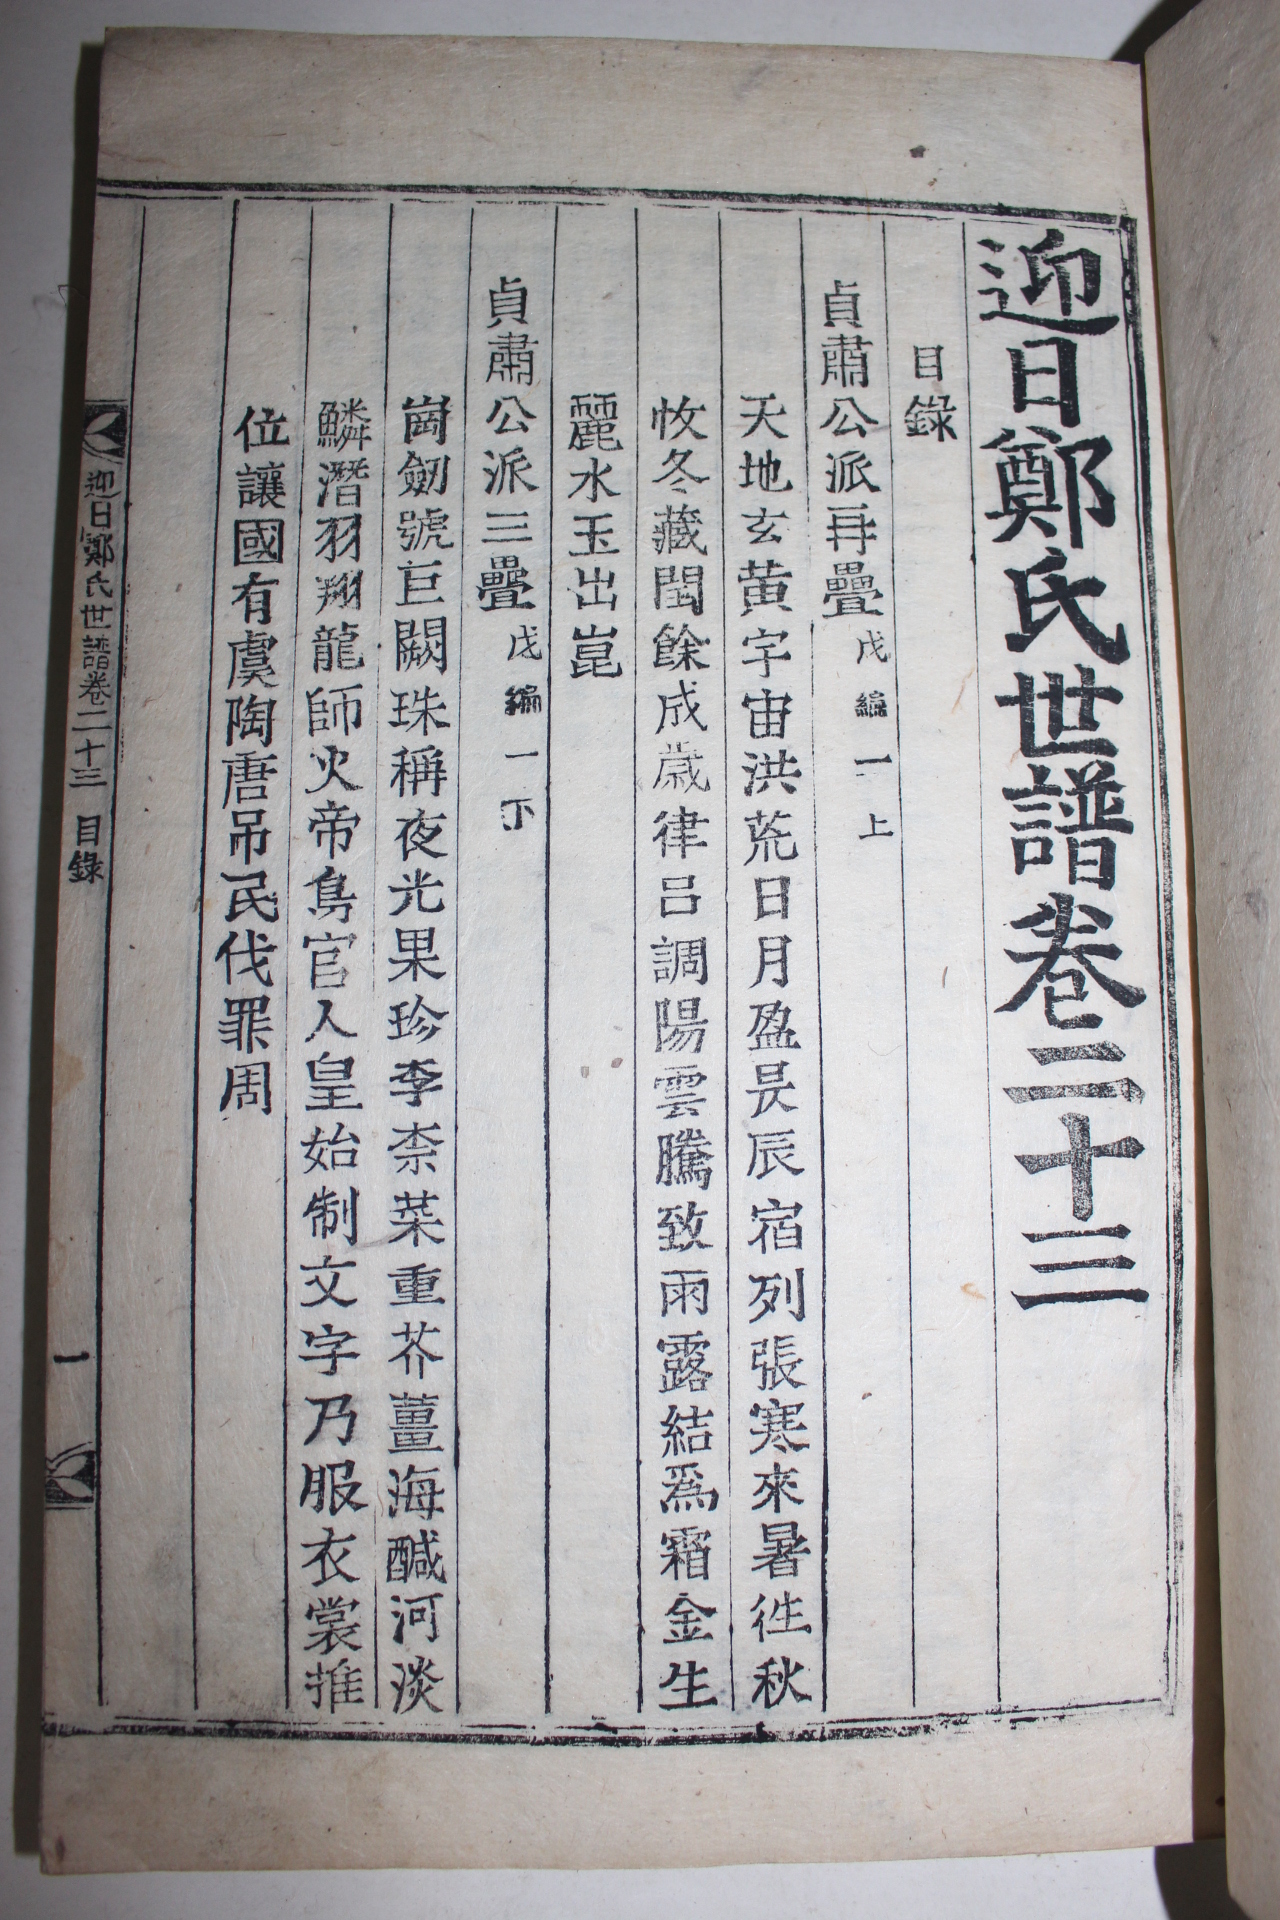 迎日鄭氏世譜卷二十三
目錄
貞肅公派再疊 戊編一上
天地玄黃宇宙洪荒日月盈昃辰宿列張寒來暑徃秋
收冬藏閏餘成歲律呂調陽雲騰致雨露結爲霜金生
麗水玉出崑
貞肅公派三疊 戊編一下
崗劒號巨闕珠稱夜光果珍李柰菜重芥薑海鹹河淡
鱗潛羽翔龍師火帝鳥官人皇始制文字乃服衣裳推
位讓國有虞陶唐吊民伐罪周
迎日鄭氏世譜卷二十三 目錄 一